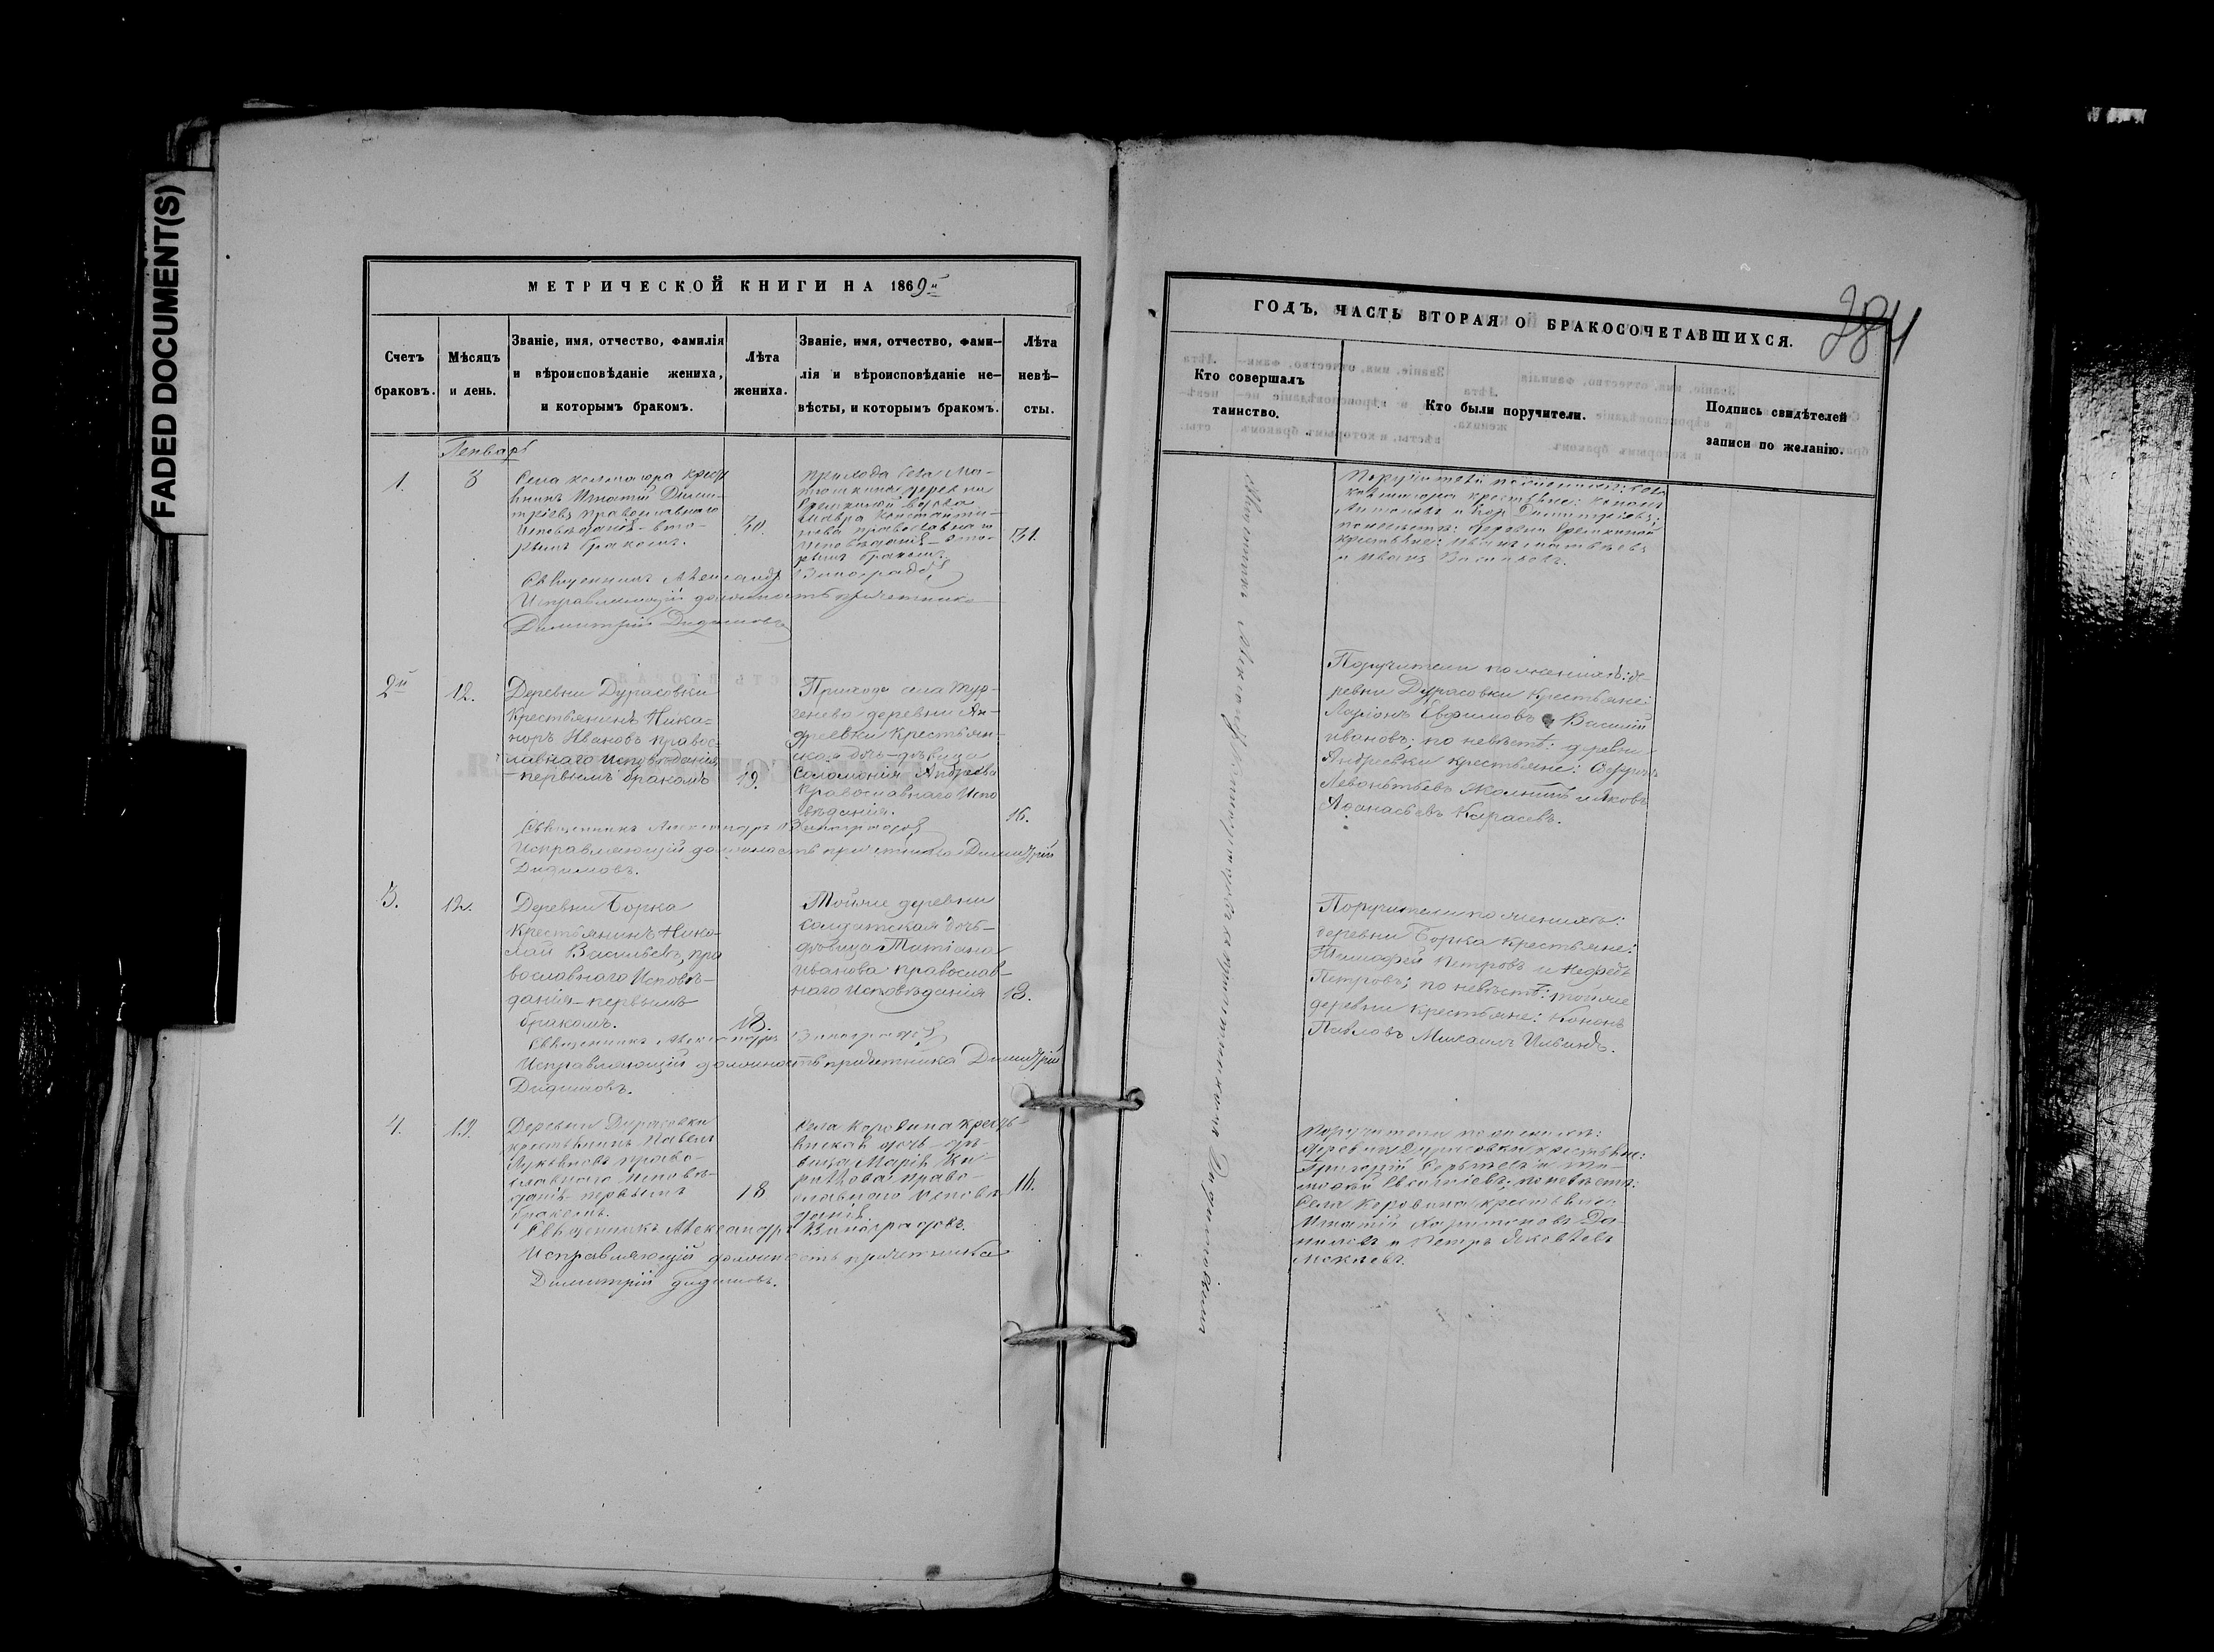 FADED DOCUMENT(S)
МЕТРИЧЕСКОЙ КНИГИ НА 1869й
Счетъ браковъ.
Мѣсяцъ и день.
Званіе, имя, отчество, фамилія
и вѣроисповѣданіе жениха,
и которымъ бракомъ.
Лѣта
жениха.
Званіе, имя, отчество, фами-
лія и вѣроисповѣданіе не-
вѣсты, и которымъ бракомъ.
Лѣта
невѣ-
сты.
1.
3
Села
Игнатій Дими-
тріевъ православнаго
исповѣданія вто-
рымъ бракомъ.
30.
прихода села Ма-
деревни
вдова
Мавра Константи-
нова православнаго
исповѣданія вто-
рымъ бракомъ
31.
Священникъ Александръ Виноградовъ
Исправляющій должность причетника
Димитрій Дидимовъ
2й
12.
Деревни Дурасовки
крестьянинъ Ника-
норъ Ивановъ правос-
лавнаго исповѣданія,
первымъ бракомъ
19.
Прихода села Тур-
генева деревни Ан-
дреевки крестьян-
ская дочь-дѣвица
Соломонія Андреева
православнаго испо
вѣданія.
16.
Священникъ Александръ Виноградовъ
Исправляющій должность причетника Димитрій
Дидимовъ.
3.
12.
Деревни Борка
крестьянинъ Нико-
лай Васильевъ, пра
вославнаго исповѣ-
данія-первымъ
бракомъ.
18.
Тойже деревни
солдатская дочь-
дѣвица Татіана
Иванова православ-
наго исповѣданія
18.
Священникъ Александръ Виноградовъ
Исправляющій должность причетника Димитрій
Дидимовъ.
4.
12
Деревни Дурасовки
крестьянинъ Павелъ
право-
славнаго исповѣ-
данія первымъ
бракомъ.
18
Села Коровина крестья-
нская дочь дѣ-
вица Марія Ки-
рилова право-
славнаго исповѣ
данія
16.
Священникъ Александръ Виноградовъ.
Исправляющій должность причетника
Димитрій Дидимовъ.
ГОДЪ, ЧАСТЬ ВТОРАЯ О БРАКОСОЧЕТАВШИХСЯ.
284
Кто совершалъ
таинство.
Кто были поручители.
Подпись свидѣтелей
записи по желанію.
Поручители по женихѣ: села
крестьяне:
Антоновъ и Егоръ Димитріевъ;
по невѣстѣ: деревни
крестьяне: Иванъ Матвѣевъ
и Иванъ
Поручители по женихѣ: де-
ревни Дурасовки крестьяне:
Ларіонъ Евфимовъ и Василій
Ивановъ; по невѣстѣ: деревни
Андреевки крестьяне:
Левонтьевъ и Яковъ
Афанасьевъ Карасевъ.
Поручители по женихѣ:
деревни Борка крестьяне:
Тимофей Петровъ и Нефедъ
Петровъ; по невѣстѣ: тойже
деревни крестьяне: Кононъ
Павловъ Михаилъ Ильинъ.
Поручители по женихѣ:
деревни Дурасовки крестьяне:
Григорій и Ти-
мофей по невѣстѣ:
Села Коровина крестьяне:
Игнатій Харитоновъ Да-
ниловъ и Петръ Яковлевъ